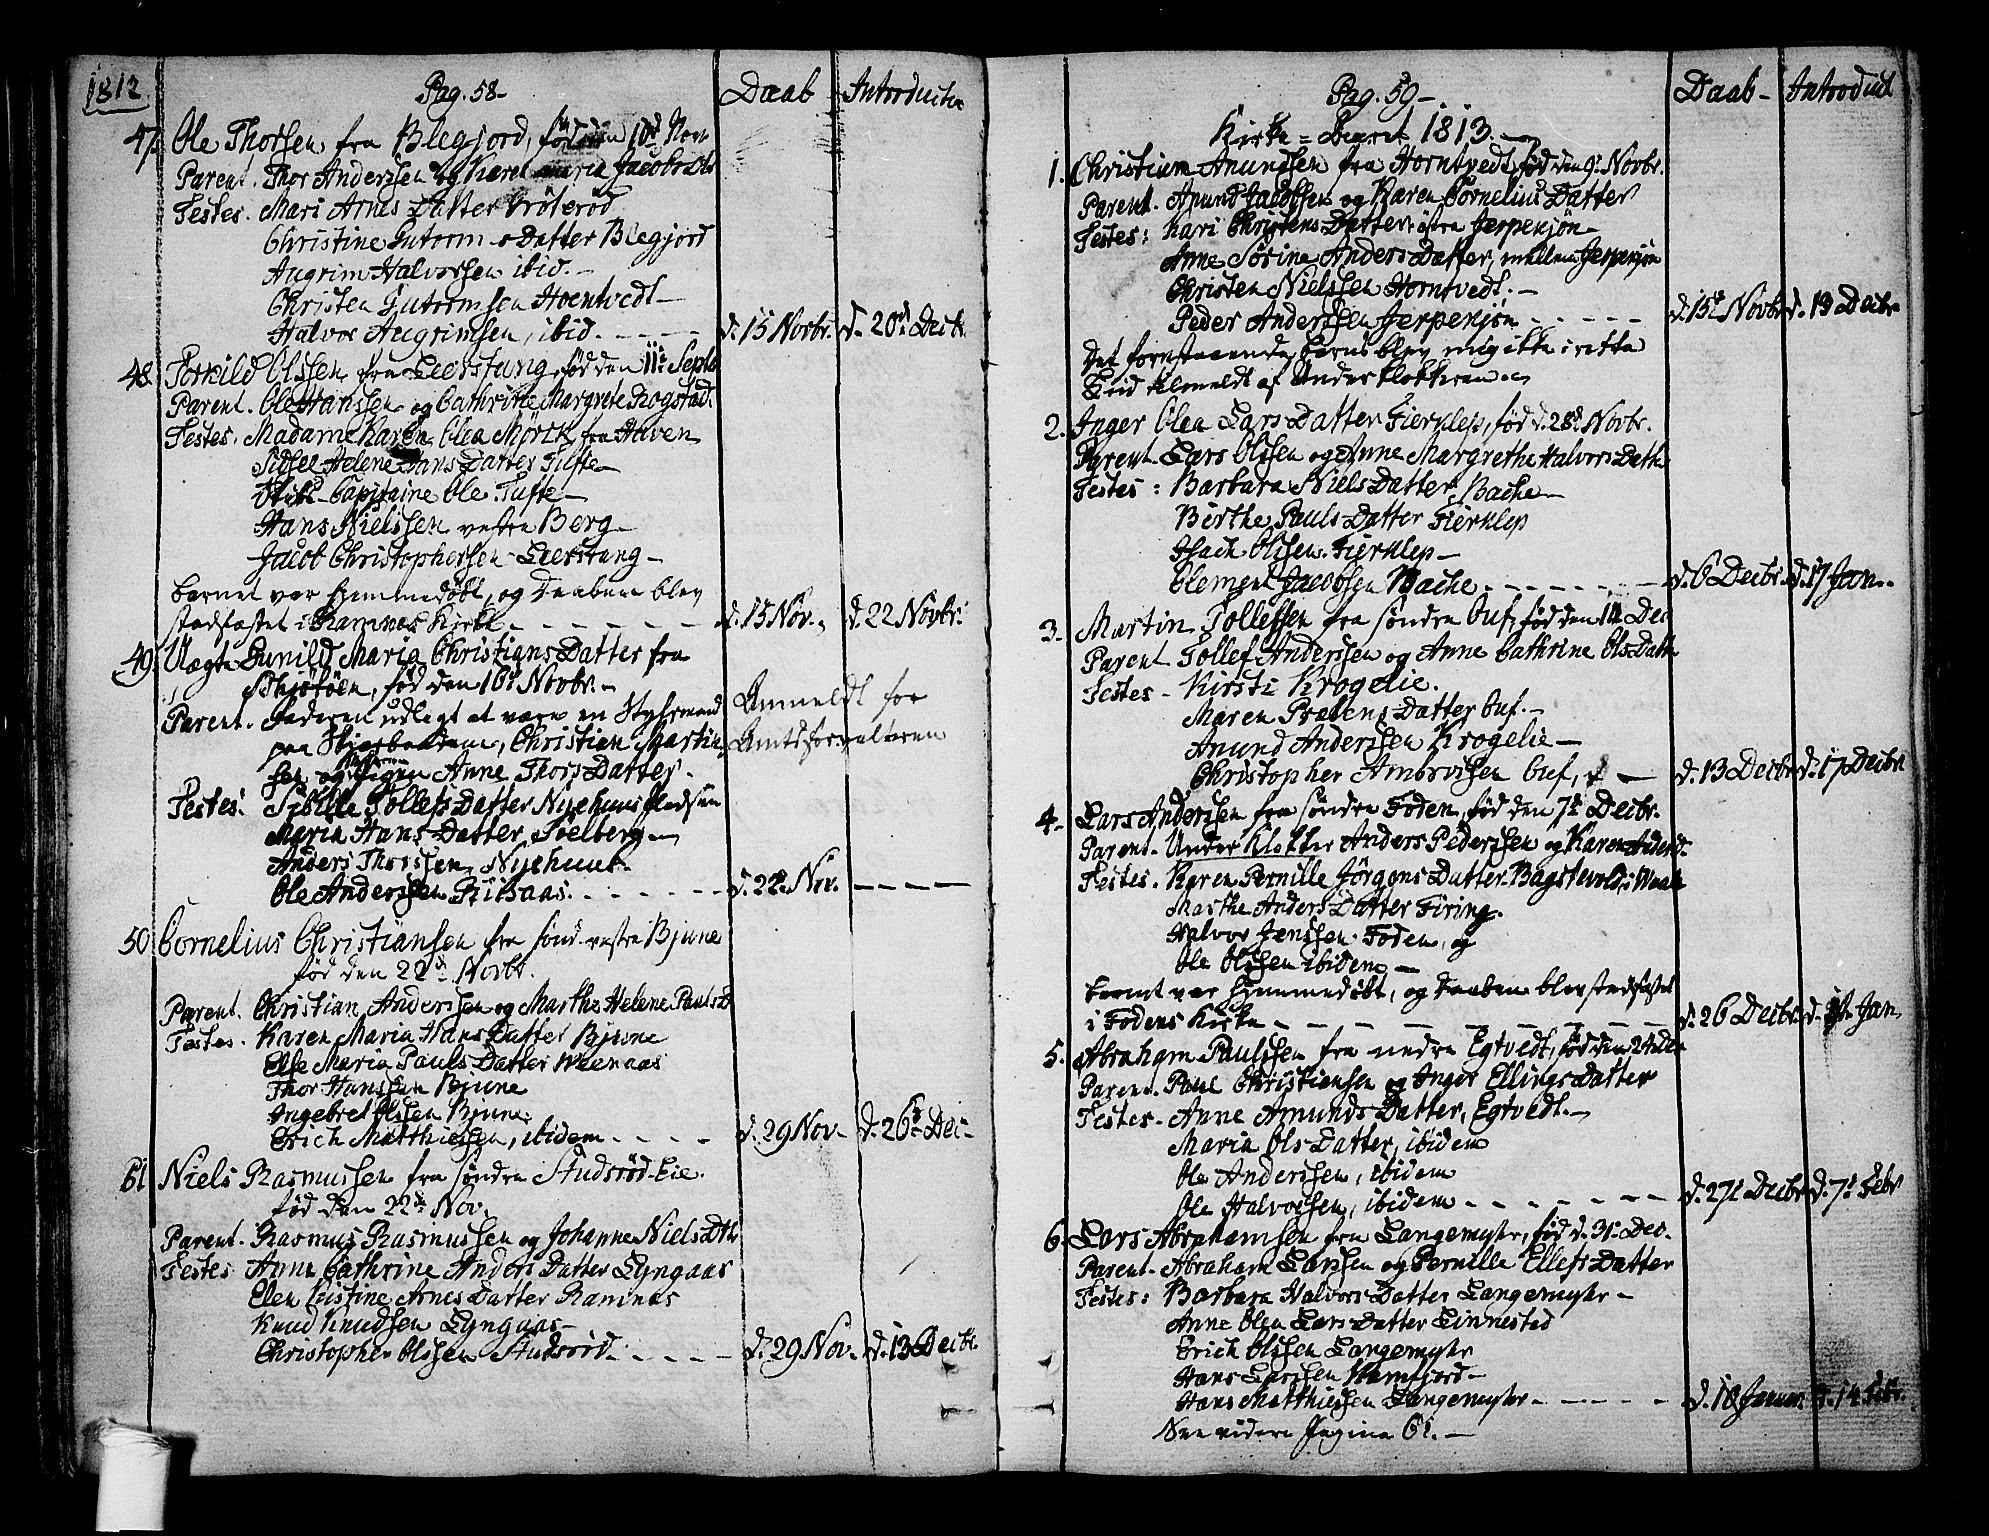 1812.
Pag. 58- Daab Introductie
47. Ole Thorsen fra Blegjord, fød den 10d Novr
Parent. Thor Anderssen og Karen Maria Jacobs Dtr
Testes. Mari Arnes Datter Brøterød
Christine Gutorms Datter Blegjord
Augrim Halvorsen ibid. -
Christen Gutormsen Hoentvedt -
Halvor Augrimsen, ibid. - - - - d. 15 Novbr. d. 20d Decbr.
48. Torkild Olssen fra Leerstang, fød den 11t Septbr
Parent. Ole Hanssen og Cathrine Margrete Rogstad.
Testes. Madame Karen Olea Morck fra Haven
Sidsel Helene Hans Datter Tufte -
Skibs-Capitaine Ole Tufte -
Hans Nielssen vestre Berg -
Jacob Christophersen Leerstang -
Barnet var hjemmedøbt, og Daaben blev
stadfæstet i Ramnes Kirke - - - - - - d. 15 Nov. d. 22 Novbr.
49. Uægte Gunild Maria Christians Datter fra
Schjøtøen, fød den 16d Novbr. -
Parent. Faderen udlegt at være en Styhrmand Anmeldt for
paa Skjærbakken, Christian Martin Amtsforvalteren
sen og Pigen Anne Thors Datter.
Testes: Sibille Tollefs Datter Nyehuus Pladsen
Maria Hans Datter Solberg -
Anders Thorssen Nyehuus -
Ole Anderssen Griisaas. - - - - - d. 22d Nov. - - - -
50 Cornelius Christiansen fra sønd. vestre Bjune
fød den 22d Novbr.
Parent. Christian Anderssen og Marthe Helene Pauls D
Testes. Karen Maria Hans Datter Bjune
Else Maria Pauls Datter Weenaas
Thor Hanssen Bjune
Ingebret Olssen Bjune
Erich Matthiessen, ibidem - - - - d. 29 Nov - d. 26d Dec -
51 Niels Rasmussen fra søndre Studsrød-Eie.
fød den 22d Nov.
Parent. Rasmus Rasmussen og Johanne Niels Dtr
Testes Anne Cathrine Anders Datter Lyngaas
Elen Cistine Arnes Datter Ramnæs
Knud Knudsen Lyngaas -
Christopher Olssen Studsrød. - - - - d. 29 Nov. d. 13 Decbr.
Pag. 59 - Daab - Introduct
Kirke-Aaret 1813. -
1. Christian Anundsen fra Horntvedt, fød den 9d Novbr.
Parent. Anund Jacobsen og Karen Cornelius Datter
Testes: Kari Christens Datter, østre Jerpekjøn -
Anne Sørine Anders Datter, mellem Jerpekjøn
Christen Nielssen Horntvedt. -
Peder Anderssen Jerpekjøn - - - - - d. 15d Novbr d. 13 Decbr
Det forestaaende Barn blev mig ikke i rette
Tid tilmeldt af Underklokkeren. -
2. Inger Olea Lars Datter Fierklep, fød d. 28d Novbr.
Parent. Lars Olssen og Anne Margrethe Halvors Datt.
Testes: Barbara Niels Datter Bache -
Birthe Pauls Datter Fierklep
Isach Olssen Fierklep -
Clement Jacobsen Bache - - - - - - d. 6 Decbr. d. 17 Jan. -
3. Martin Tollefsen fra søndre Guf, fød den 1d Dec
Parent Tollef Anderssen og Anne Cathrine Ols Datt
Testes - Kirsti Krogelie.
Maren Prebens Datter Guf. -
Anund Anderssen Krogelie -
Christopher Ambrosen Guf, - d. 13 Decbr d. 17 Decbr
4. Lars Anderssen fra søndre Foden, fød den 7d Decbr.
Parent. Under Klokker Anders Pederssen og Karen Anders D.
Testes. Karen Pernille Jørgens Datter Bagstevold i Waale
Marthe Anders Datter Firing.
Halvor Jenssen Foden, og
Ole Olssen ibidem -
Barnet var hjemmedøbt, og Daaben blev stadfæstet
i Fodens Kirke - - - - - - - - - d. 26 Decbr. d. Jan.
5. Abraham Paulssen fra nedre Egtvedt, fød den
Parent. Paul Christiansen og Inger Ellings Datter
Testes. Anne Amunds Datter, Egtvedt. -
Maria Ols Datter, ibidem
Ole Anderssen, ibidem
Ole Halvorsen, ibidem - - - - - - - d. 27d Decbr d. 7d Febr
6. Lars Abrahamsen fra Langemyhr, fød d. 31. Dec.
Parent. Abraham Larssen og Pernille Ellefs Datter
Testes: Barbara Halvors Datter Langemyhr -
Anne Olea Lars Datter Linnestad
Erich Olssen Langemyhr
Hans Larssen Kamfjord -
Hans Matthiessen Langemyhr - - - - - d. 10 Januar. d. 14 Febr.
See videre Pagina 61. -